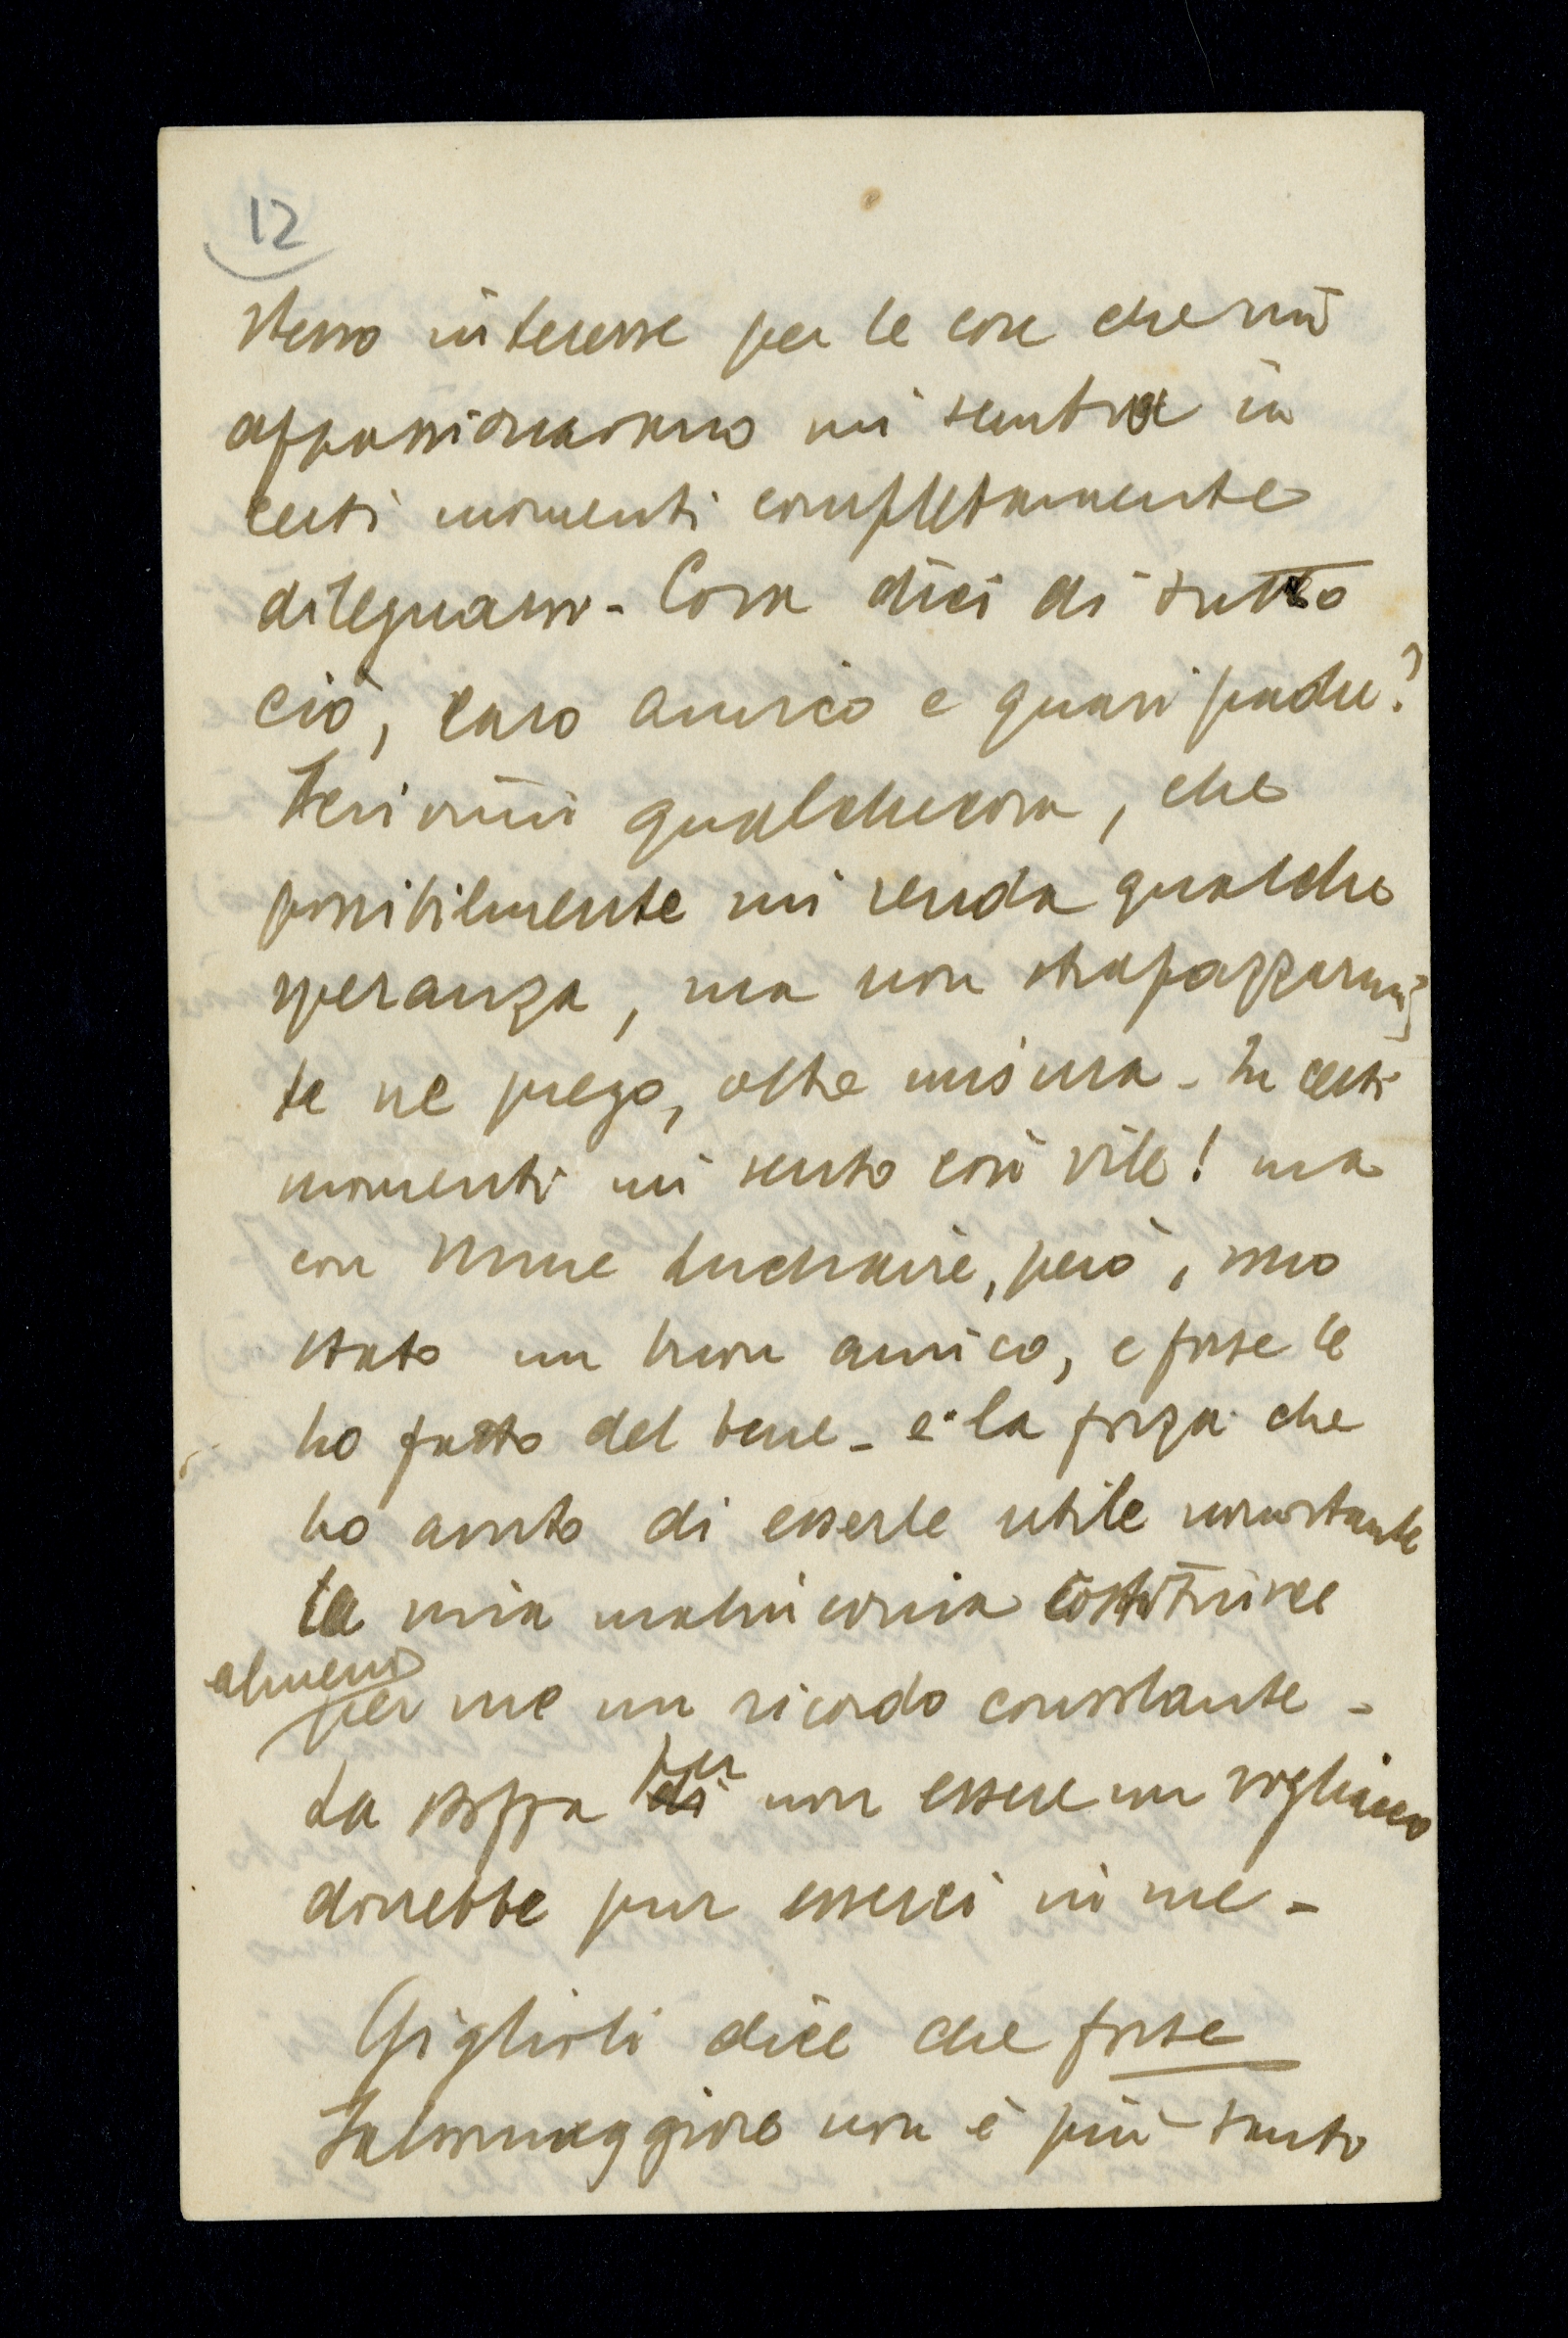 12
stesso interesse per le cose che più
appassionavano mi sembra in
certi momenti completamente
dileguarsi - Cosa dici di tutto
ciò, caro amico e quasi padre?
Scrivimi qualchecosa, che
possibilmente mi renda qualche
speranza, ma non strapazzarmi,
te ne prego, oltre misura - In certi
momenti mi sento così vile! ma
con Mme Luchaire, però, sono
stato un buon amico, e forse le
ho fatto del bene - e la forza che
ho avuto di esserle utile nonostante
la mia malinconia costituisce
almeno
per me un ricordo consolante -
La stoffa per di non essere un vigliacco
dovrebbe pur esserci in me -
Giglioli dice che forse
Salvormaggiore non è più tanto